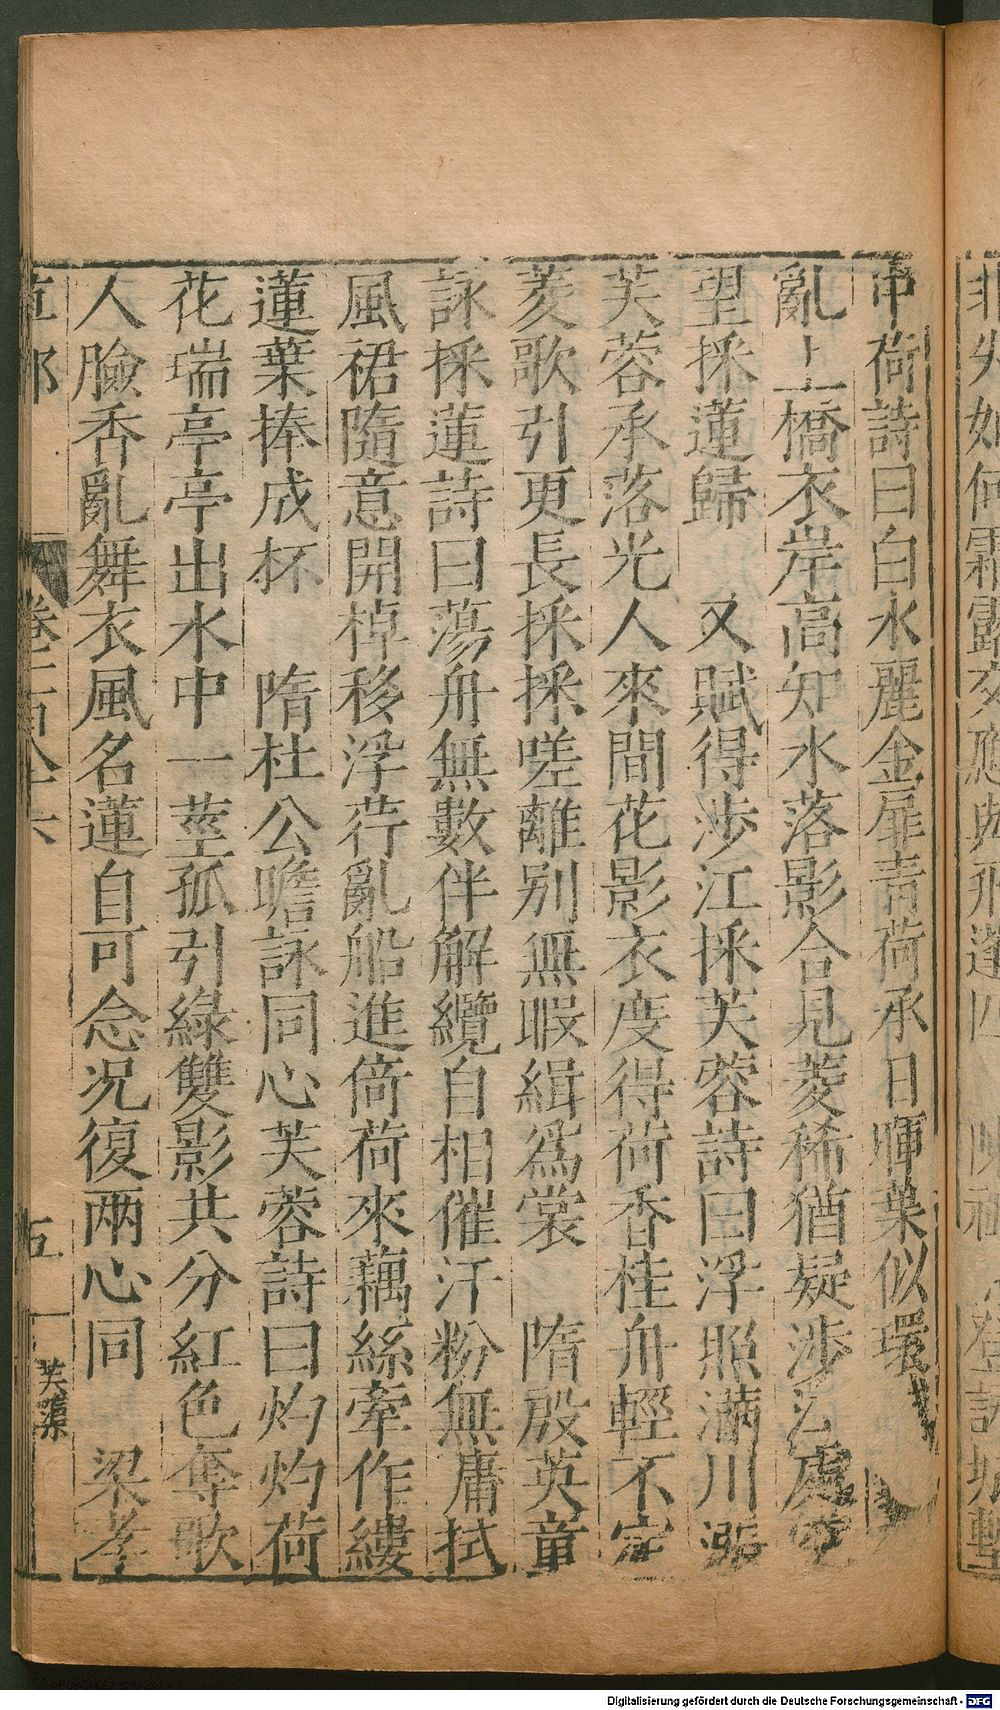 申荷詩曰白水麗金扉青荷承日暉葉似環
亂上橋衣岸高知水落影合見菱稀猶疑涉江處空
望採蓮歸 又賦得涉江採芙蓉詩曰浮照滿川漲
芙蓉承落光人來間花影衣度得荷香桂舟輕不定
菱歌引更長採採嗟離别無暇緝為裳 隋殷英童
詠採蓮詩曰蕩舟無數伴解纜自相催汗粉無庸拭
風裙隨意開棹移浮荇亂船進倚荷來藕絲牽作縷
蓮葉捧成杯 隋杜公瞻詠同心芙蓉詩曰灼灼荷
花瑞亭亭出水中一莖孤引綠雙影共分紅色奪歌
人臉香亂舞衣風名蓮自可念况復兩心同 梁孝
卷二百八十六
五
芙蕖
菲失如何霜露交應與飛蓬
Digitalisierung gefördert durch die Deutsche Forschungsgemeinschaft - DFG